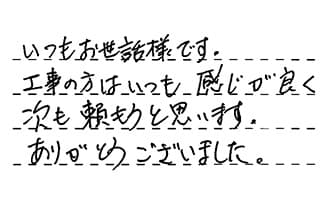 いつもお世話様です。
工事の方はいつも感じが良く
次も頼もうと思います。
ありがとうございました。